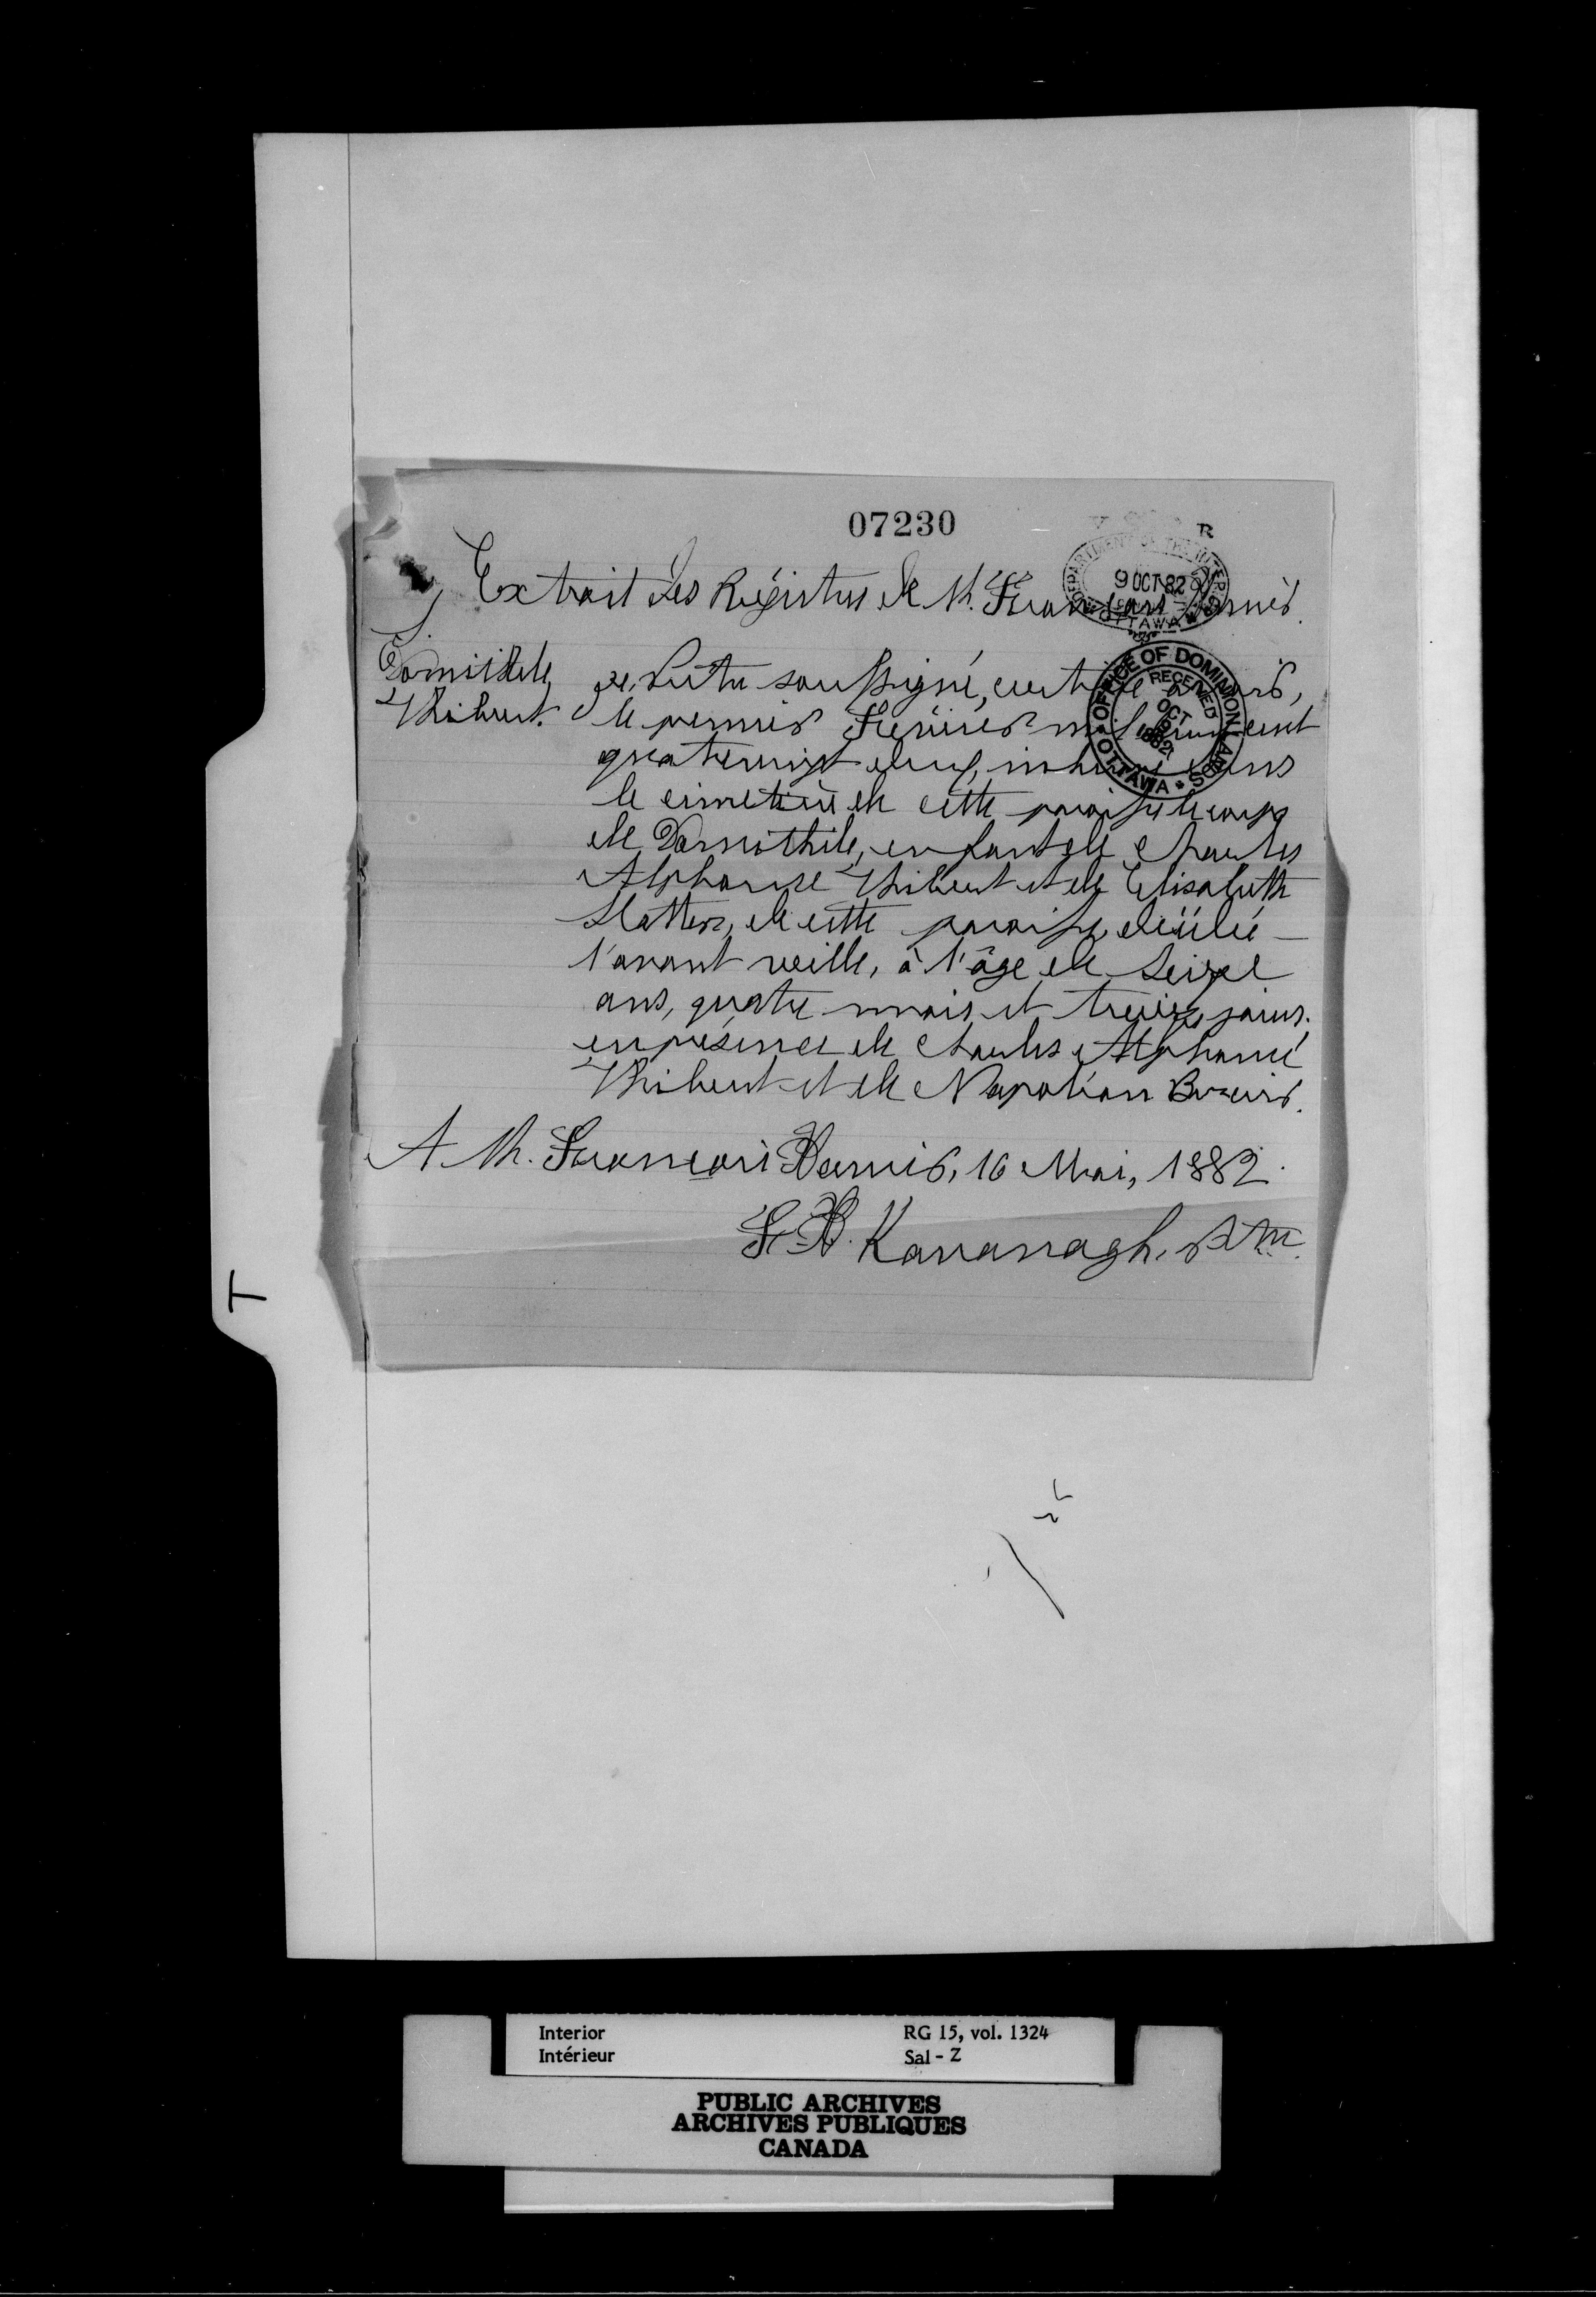 07230
Extrait des Régistres de St. François Xavier.
S.
Domithile
Thibert.
DEPARTMENT OF THE INTERIOR
9 OCT 82
OTTAWA
OFFICE OF DOMINION LANDS
RECEIVED
OCT
9
1882
OTTAWA
Je, Prêtre soussigné, certifie avoir,
le premier Février mil huit cent
quatrevingt deux, inhumé dans
le cimetière de cette paroisse le corps
de Domithile, enfant de Charles
Alphonse Thibert et de Elisabeth
Slatter, de cette paroisse, décédée
l'avant veille, à l'âge de Seize
ans, quatre mois et treize jours.
en présence de Charles Alphonse
Thibert et de Napoléon
A St. François Xavier, 16 Mai, 1882.
F. X. Kavanagh, Ptre.
T
Interior RG 15, vol. 1324
Intérieur Sal - Z
PUBLIC ARCHIVES
ARCHIVES PUBLIQUES
CANADA